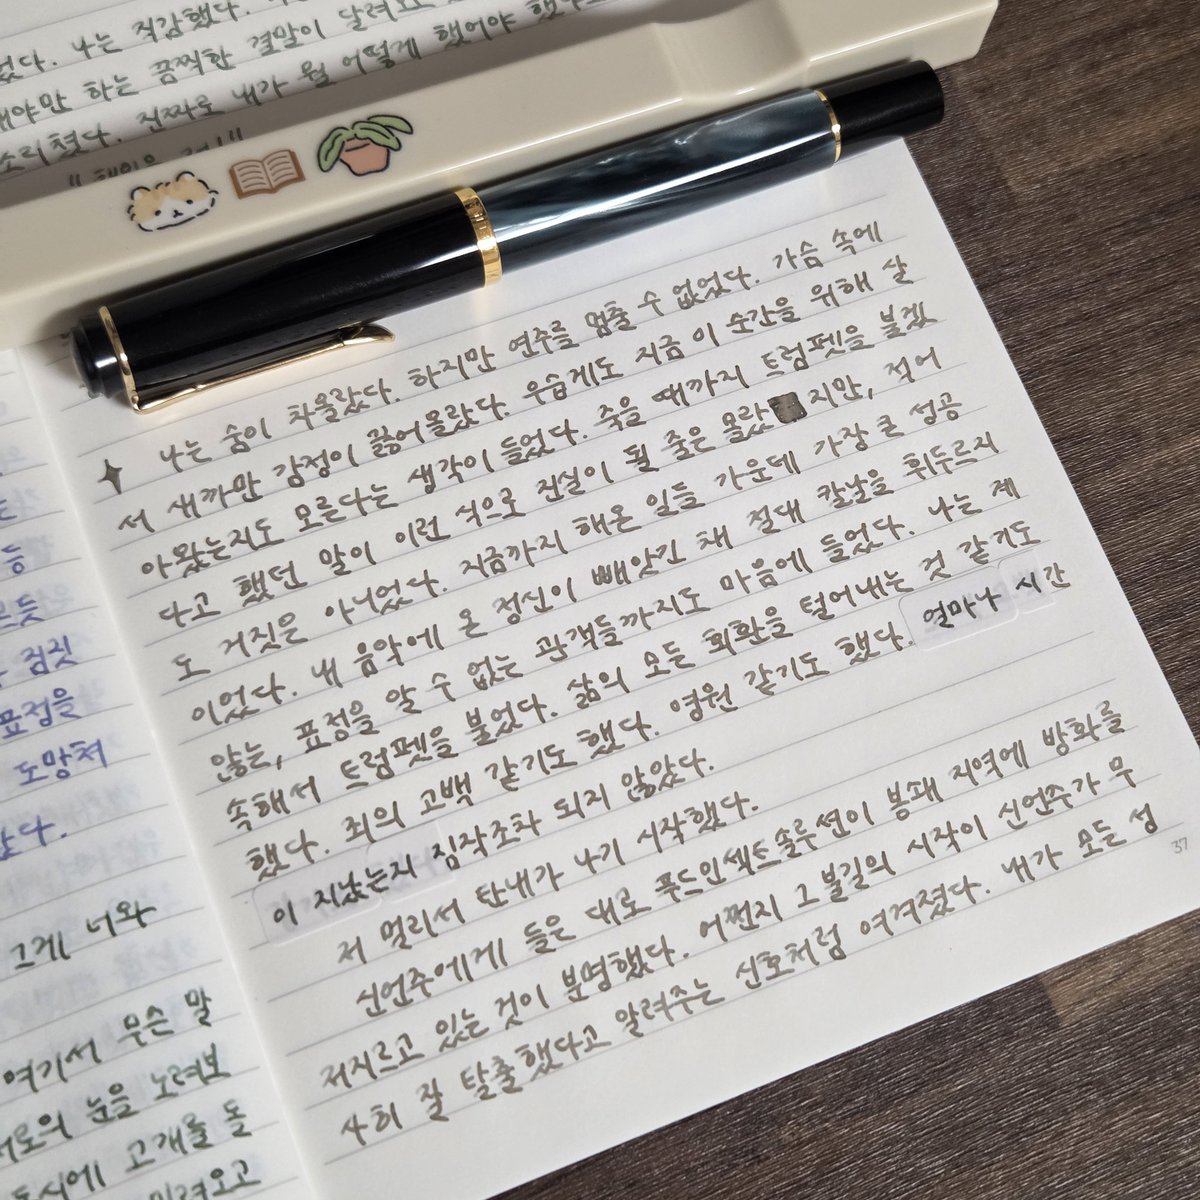 없다. 나는 직감했다.
해야만 하는 끔찍한 결말이 달려오
소리쳤다. 진짜로 내가 뭘 어떻게 했어야 했
나는 숨이 차올랐다. 하지만 연주를 멈출 수 없었다. 가슴 속에
서 새까만 감정이 끓어올랐다. 우습게도 지금 이 순간을 위해 살
아왔는지도 모른다는 생각이 들었다. 죽을 때까지 트럼펫을 불겠
다고 했던 말이 이런 식으로 진실이 될 줄은 몰랐지만, 적어
도 거짓은 아니었다. 지금까지 해온 일들 가운데 가장 큰 성공
이었다. 내 음악에 온 정신이 빼앗긴 채 절대 칼날을 휘두르지
않는, 표정을 알 수 없는 관객들까지도 마음에 들었다. 나는 계
속해서 트럼펫을 불었다. 삶의 모든 회환을 털어내는 것 같기도
했다. 죄의 고백 같기도 했다. 영원 같기도 했다. 얼마나 시간
이 지났는지 짐작조차 되지 않았다.
저 멀리서 탄내가 나기 시작했다.
신언주에게 들은 대로 푸드인섹트솔루션이 봉쇄 지역에 방화를
저지르고 있는 것이 분명했다. 어쩐지 그 불길의 시작이 신언주가 무
사히 잘 탈출했다고 알려주는 신호처럼 여겨졌다. 내가 모든 성
37
등
듯
검짓
표정을
도망쳐
았다.
그게 너와
여기서 무슨 말
서로의 눈을 노려보
동시에 고개를 돌
밀려오고